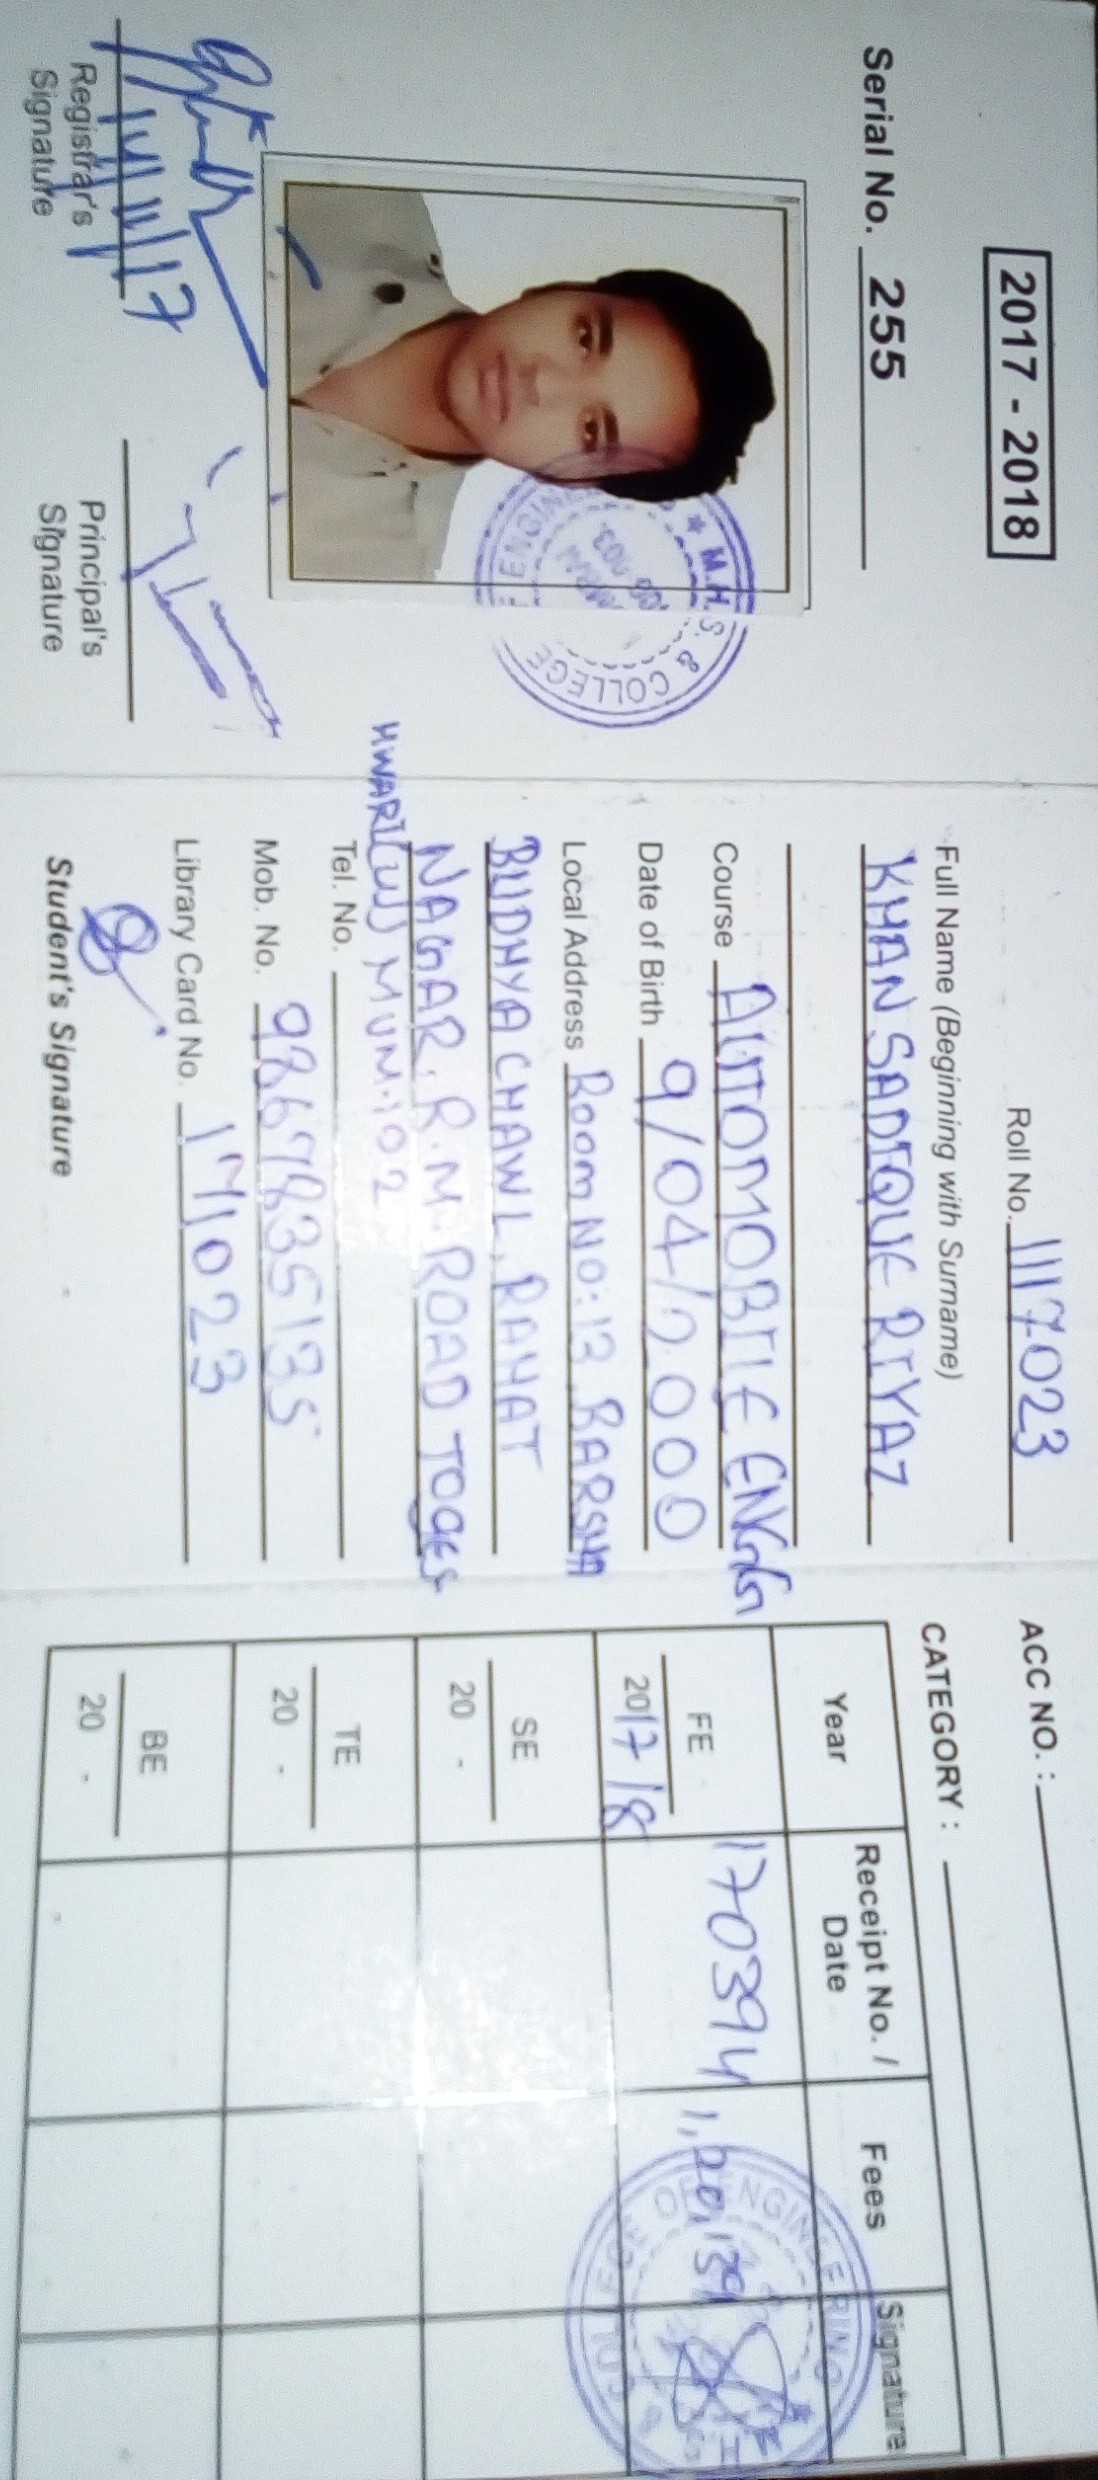 2017 - 2018
Serial No. 255
M.H. S. & COLLEGE
Registrar's
Signature
Principal's
Signature
Roll No. 1117023
Full Name (Beginning with Surname)
KHAN SADIQUE RIYAZ
Course AUTOMOBILE ENGG
Date of Birth 9/04/2000
Local Address Room NO: 13, BARSHA
BUDHYA CHAWL, RAHAT
NAGAR. R.M. ROAD TOGES
HWARI(W) MUM-102
Tel. No.
Mob. No. 9867835135
Library Card No. 171023
Student's Signature
ACC NO. :
CATEGORY :
Year Receipt No. / Date Fees Signature
FE 2017 18 170394 1,20,139
COLLEGE OF ENGINEERING
SE 20 -
TE 20 -
BE 20 -